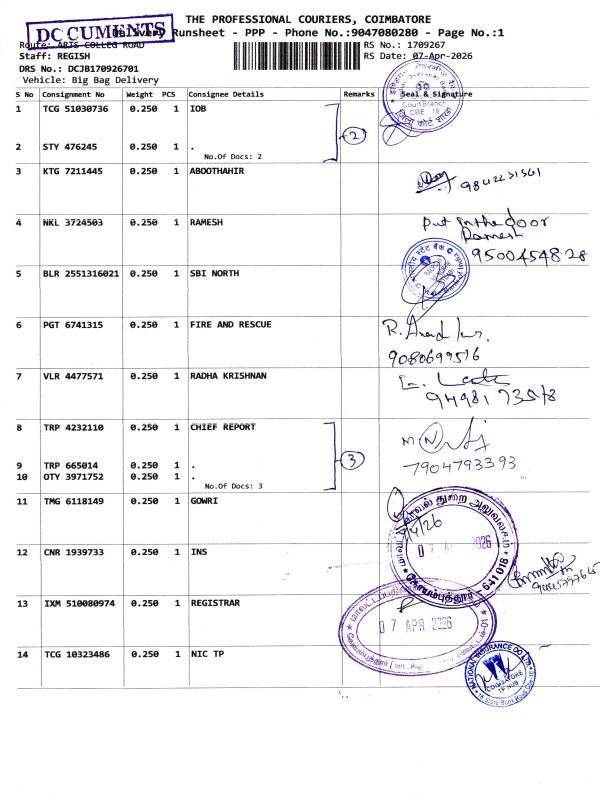 THE PROFESSIONAL COURIERS, COIMBATORE
DOCUMENTS
Delivery Runsheet - PPP - Phone No.:9047080280 - Page No.:1
Route: ARTS COLLEG ROAD
RS No.: 1709267
Staff: REGISH
RS Date: 07-Apr-2026
DRS No.: DCJB170926701
Vehicle: Big Bag Delivery
S No Consignment No Weight PCS Consignee Details Remarks Seal & Signature
Court Branch
CBE 18
1 TCG 51030736 0.250 1 IOB
2
2 STY 476245 0.250 1 .
No.Of Docs: 2
3 KTG 7211445 0.250 1 ABOOTHAHIR
4 NKL 3724503 0.250 1 RAMESH
Put in the door
Ramesh
9500454828
5 BLR 2551316021 0.250 1 SBI NORTH
6 PGT 6741315 0.250 1 FIRE AND RESCUE
9080699516
7 VLR 4477571 0.250 1 RADHA KRISHNAN
8 TRP 4232110 0.250 1 CHIEF REPORT
3
7904793393
9 TRP 665014 0.250 1 .
10 OTY 3971752 0.250 1 .
No.Of Docs: 3
11 TMG 6118149 0.250 1 GOWRI
641 018
12 CNR 1939733 0.250 1 INS
13 IXM 510080974 0.250 1 REGISTRAR
07 APR 2026
14 TCG 10323486 0.250 1 NIC TP
NATIONAL INSURANCE CO. LTD.
COIMBATORE
TP HUB